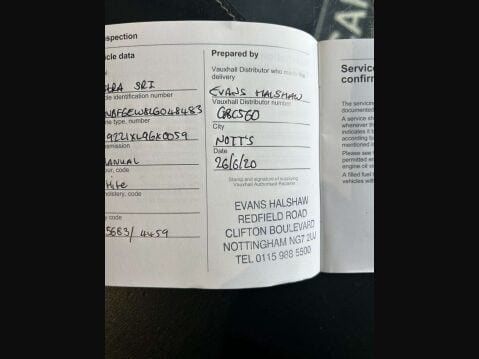 spection
cle data
TRA SRI
le identification number
ne type, number
mission
ANUAL
our, code
hite
olstery, code
y code
5683/4459
Prepared by
Vauxhall Distributor who made the
delivery
EVANS HALSHAW
Vauxhall Distributor number
City
NOTT'S
Date
26/6/20
Stamp and signature of supplying
Vauxhall Authorised Retailer
EVANS HALSHAW
REDFIELD ROAD
CLIFTON BOULEVARD
NOTTINGHAM NG7 2UJ
TEL 0115 988 5500
Service
confirm
The service
A service sh
whenever the
indicates it
according to
mentioned i
Please see
permitted en
engine oil
A filled fuel
vehicles with